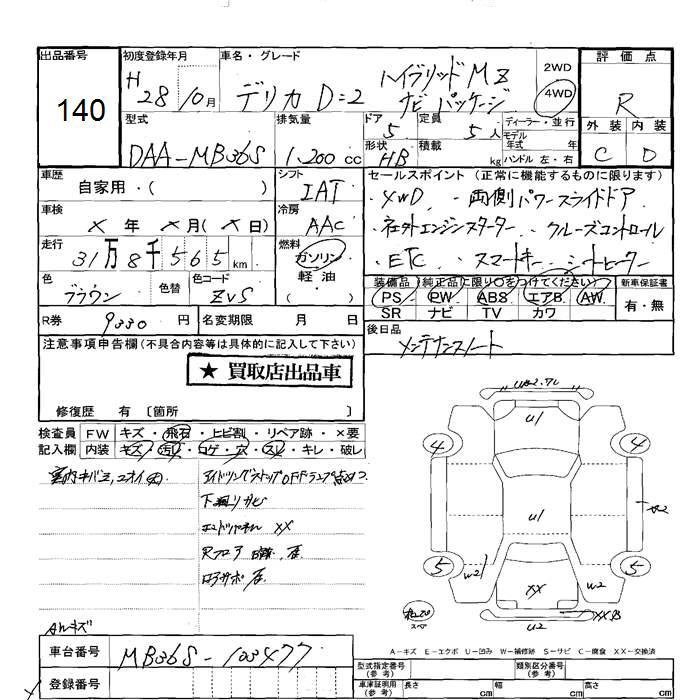 出品番号 初度登録年月 車名・グレード 評価点
140
H 28 10月 デリカ D=2 ハイブリッド MZ
ナビパッケージ
2WD
4WD
R
型式 排気量 ドア 定員 ディーラー・並行 外装 内装
DAA-MB36S 1,200 cc 5 5人 モデル年式 年
形状 HB 積載 kg ハンドル 左・右 C D
車歴 自家用・( ) シフト IAT セールスポイント(正常に機能するものに限ります)
・4WD ・両側パワースライドドア
車検 × 年 × 月(× 日) 冷房 AAC
・社外エンジンスターター ・クルーズコントロール
走行 31万8千565km 燃料 ガソリン・軽油・( )
・ETC ・スマートキー ・シートヒーター
色 ブラウン 色替 色コード ZVS
装備品(純正品に限り○をつけてください) 新車保証書
PS PW ABS エアB AW 有・無
SR ナビ TV カワ
R券 9330 円 名変期限 月 日
後日品
メンテナンスノート
注意事項申告欄(不具合内容等は具体的に記入して下さい)
★ 買取店出品車
修復歴 有〔箇所 〕
検査員 FW キズ・飛石・ヒビ割・リペア跡・×要
記入欄 内装 キズ・汚れ・コゲ・穴・スレ・キレ・破レ
室内キバミ、ニオイ大
アイドリングストップOFFランプ点灯
下廻りサビ
エンドパネル XX
Rフロア 凹
コアサポ
AWキズ
U1
4 4
U1
5 5
W2 W2
XX
U2
スペア
A-キズ E-エクボ U-凹み W-補修跡 S-サビ C-腐食 XX-交換済
車台番号 MB36S-103477
登録番号
型式指定番号(参考) 類別区分番号(参考)
車庫証明用(参考) 長さ cm 幅 cm 高さ cm